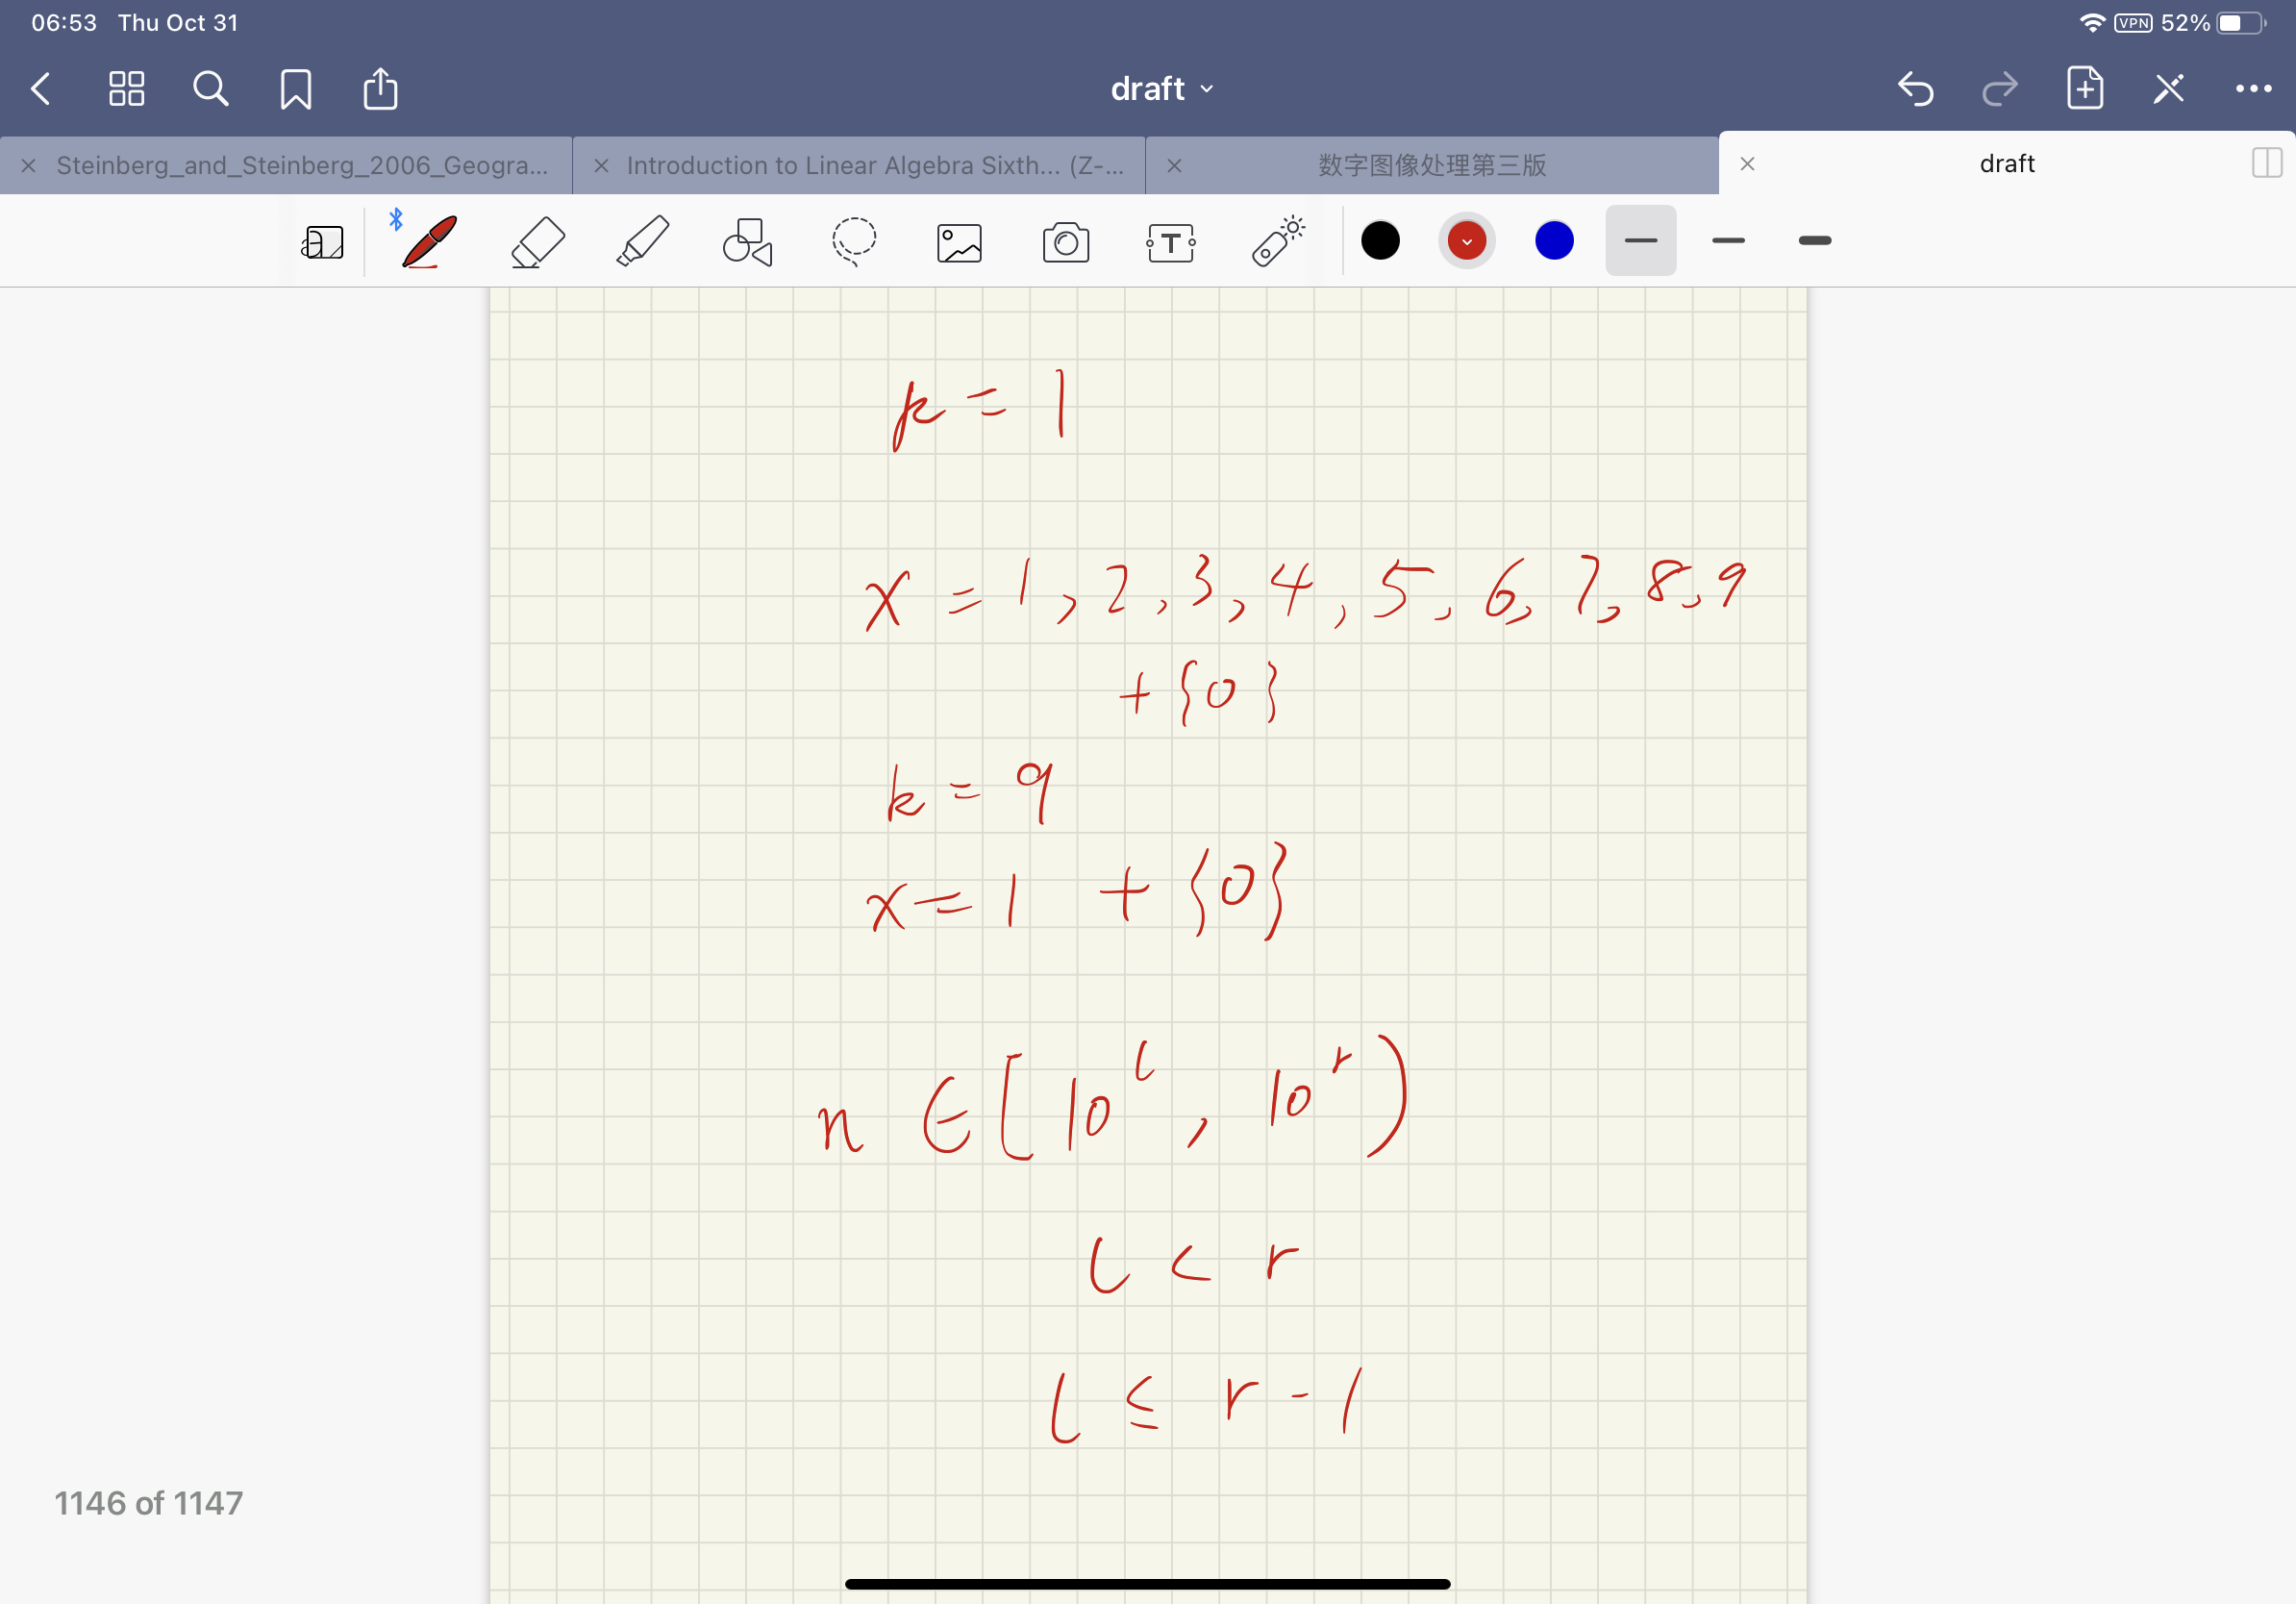 06:53 Thu Oct 31
VPN 52%
draft
Steinberg_and_Steinberg_2006_Geogra...
Introduction to Linear Algebra Sixth... (Z-...
数字图像处理第三版
draft
T
k = 1
x = 1, 2, 3, 4, 5, 6, 7, 8, 9
+ {0}
k = 9
x = 1 + {0}
n ∈ [10^l, 10^r)
l < r
l ≤ r - 1
1146 of 1147